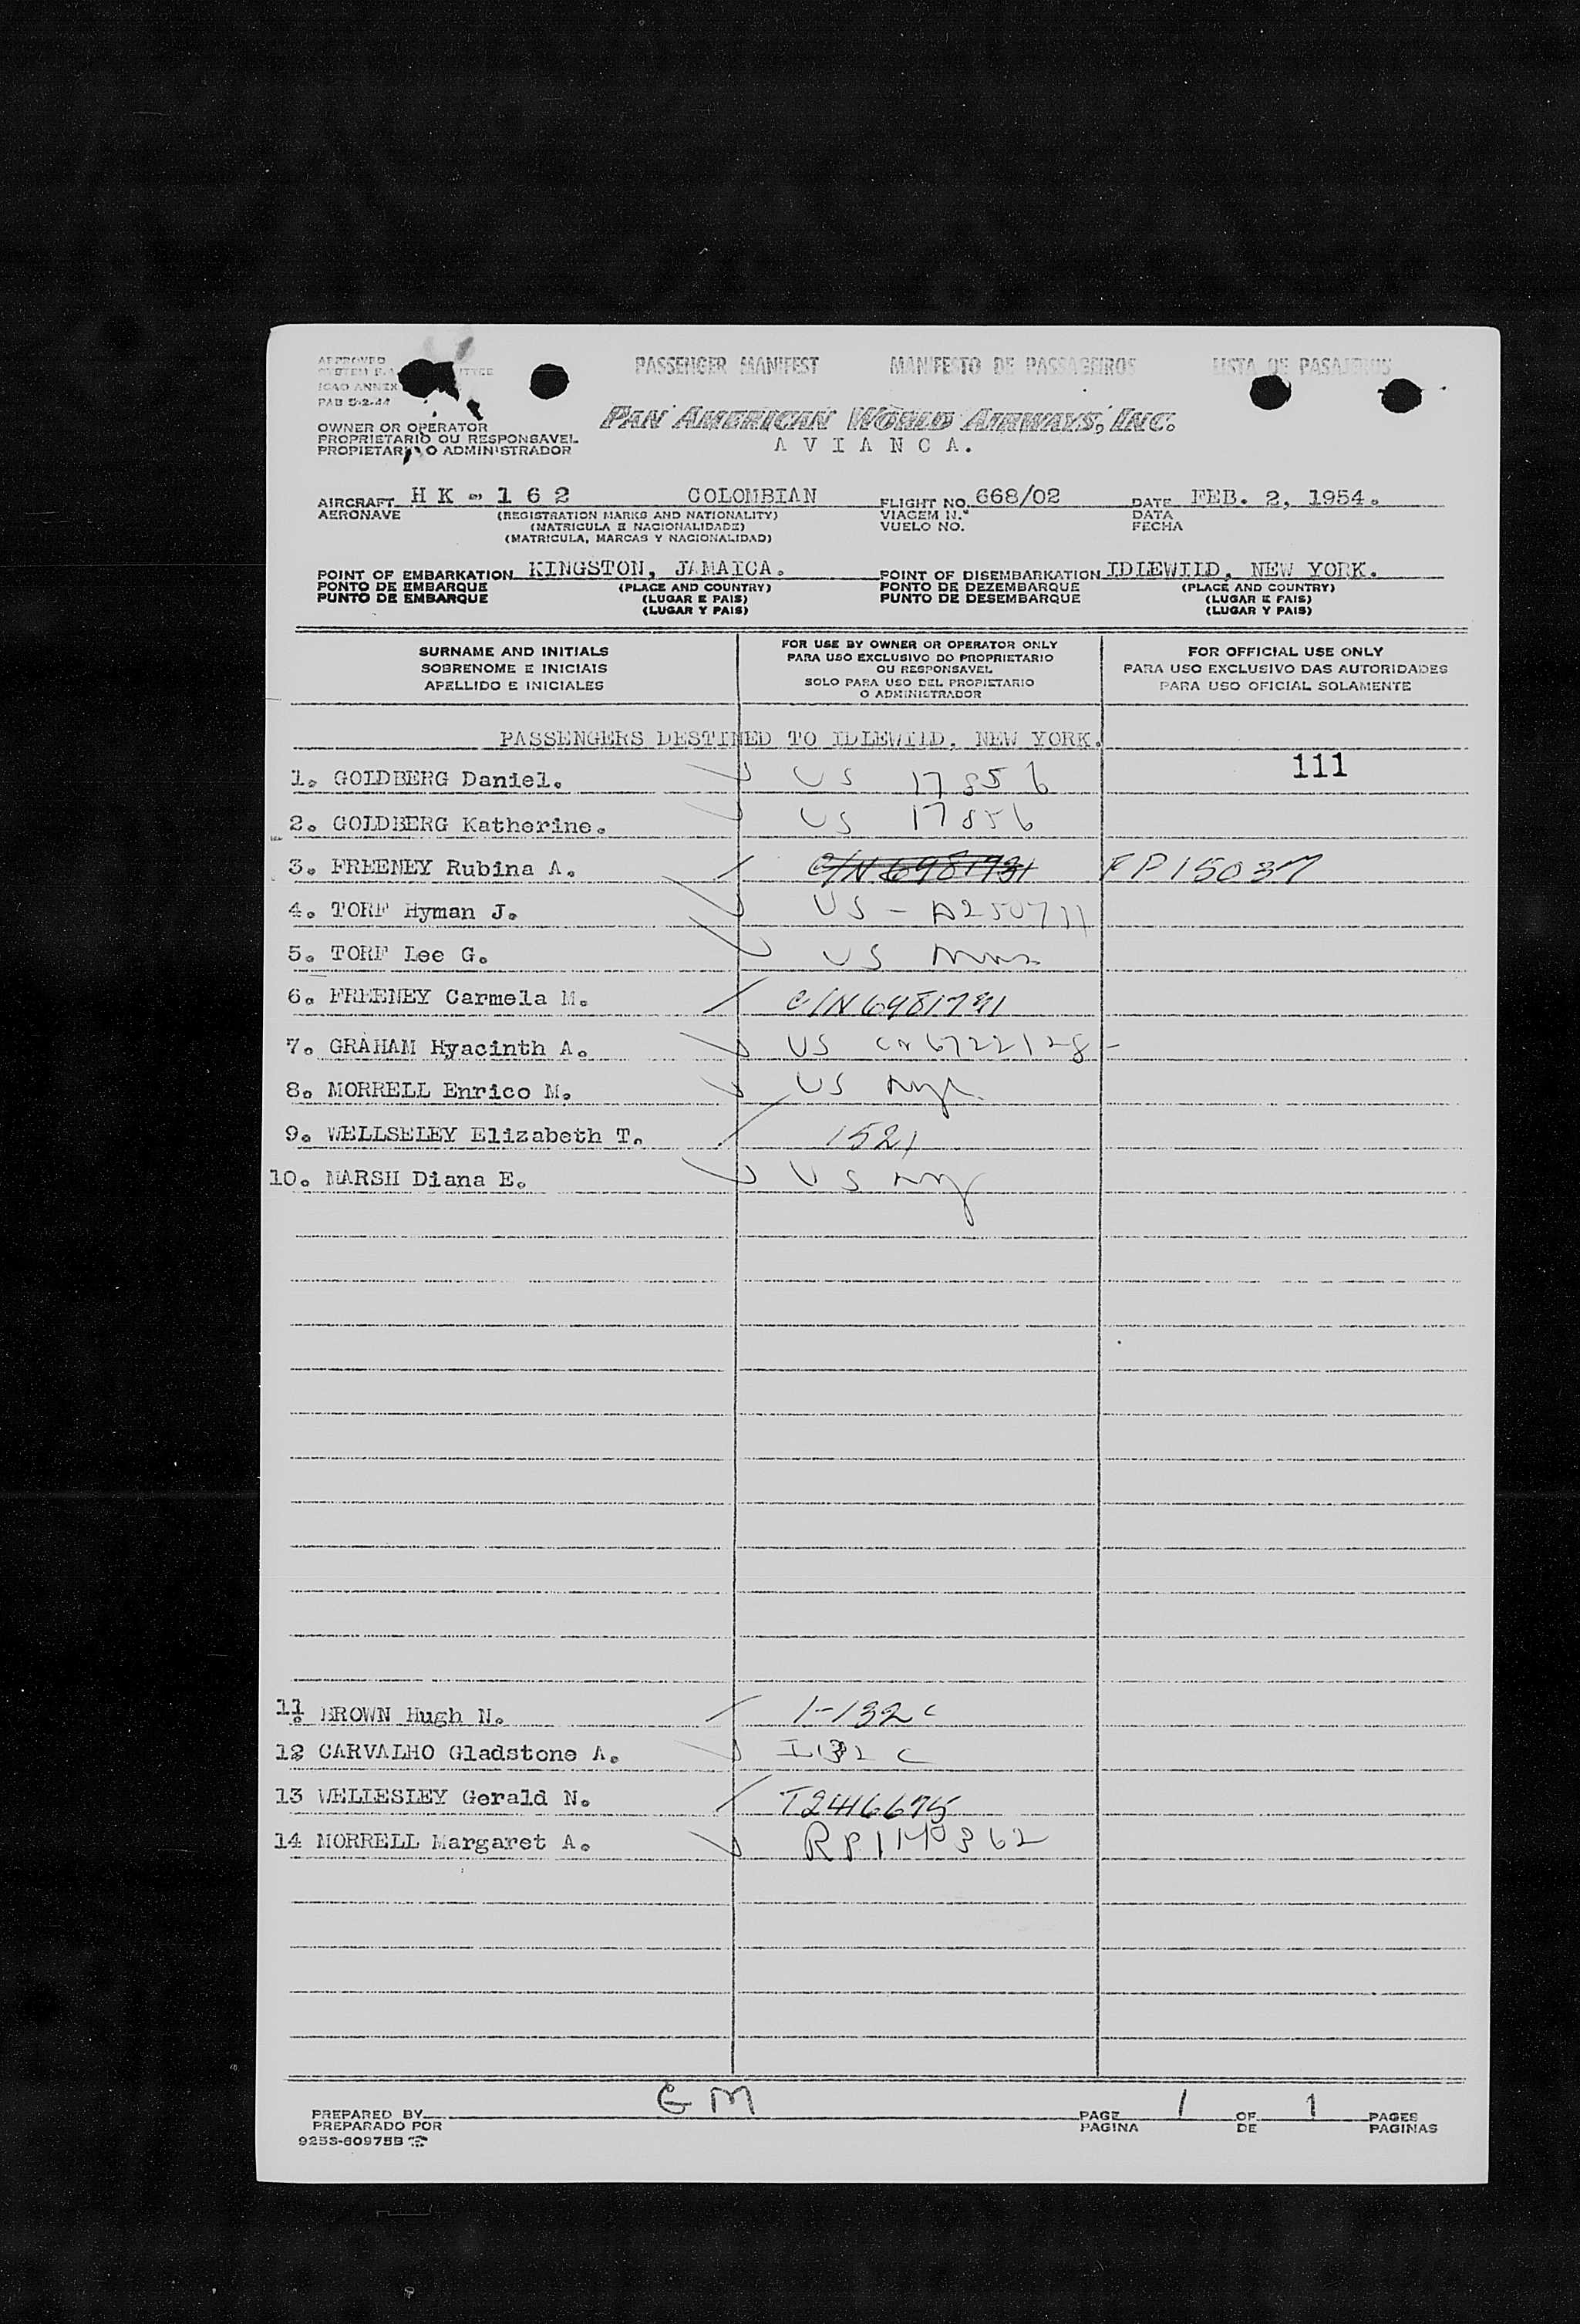 APPROVED
ICAO ANNEX
PAB 5-2-44
PASSENGER MANIFEST MANIFESTO DE PASSAGEIROS LISTA DE PASAJEROS
OWNER OR OPERATOR
PROPRIETARIO OU RESPONSAVEL
PROPIETARIO O ADMINISTRADOR
PAN AMERICAN WORLD AIRWAYS, INC.
A V I A N C A.
AIRCRAFT H K - 1 6 2 COLOMBIAN FLIGHT NO. 668/02 DATE FEB. 2, 1954.
AERONAVE (REGISTRATION MARKS AND NATIONALITY) VIAGEM N.º DATA
(MATRICULA E NACIONALIDADE) VUELO NO. FECHA
(MATRICULA, MARCAS Y NACIONALIDAD)
POINT OF EMBARKATION KINGSTON, JAMAICA. POINT OF DISEMBARKATION IDLEWILD, NEW YORK.
PONTO DE EMBARQUE (PLACE AND COUNTRY) PONTO DE DEZEMBARQUE (PLACE AND COUNTRY)
PUNTO DE EMBARQUE (LUGAR E PAIS) PUNTO DE DESEMBARQUE (LUGAR E PAIS)
(LUGAR Y PAIS) (LUGAR Y PAIS)
SURNAME AND INITIALS
SOBRENOME E INICIAIS
APELLIDO E INICIALES
FOR USE BY OWNER OR OPERATOR ONLY
PARA USO EXCLUSIVO DO PROPRIETARIO
OU RESPONSAVEL
SOLO PARA USO DEL PROPIETARIO
O ADMINISTRADOR
FOR OFFICIAL USE ONLY
PARA USO EXCLUSIVO DAS AUTORIDADES
PARA USO OFICIAL SOLAMENTE
PASSENGERS DESTINED TO IDLEWILD, NEW YORK.
111
1. GOLDBERG Daniel. US 17856
2. GOLDBERG Katherine. US 17856
3. FREENEY Rubina A. FP15037
4. TORF Hyman J. US - A250711
5. TORF Lee G. US
6. FREENEY Carmela M. C/N 6981791
7. GRAHAM Hyacinth A. US CN 6722128-
8. MORRELL Enrico M. US
9. WELLSELEY Elizabeth T. 1521
10. MARSH Diana E. US
11. BROWN Hugh N. 1-132 C
12 CARVALHO Gladstone A. I 132 C
13 WELLESLEY Gerald N. T2416675
14 MORRELL Margaret A. RP1140362
GM
PREPARED BY PAGE 1 OF 1 PAGES
PREPARADO POR PAGINA DE PAGINAS
925S-60975B